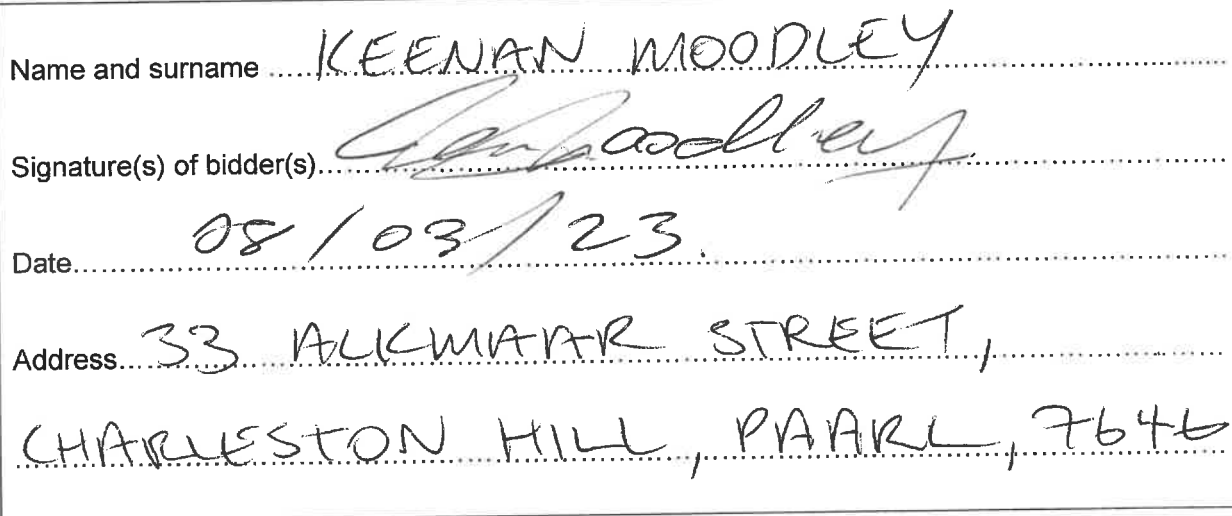 Name and surname KEENAN MOODLEY
Signature(s) of bidder(s) Moodley
Date 08/03/23.
Address 33 ALKMAAR STREET,
CHARLESTON HILL, PAARL, 7646